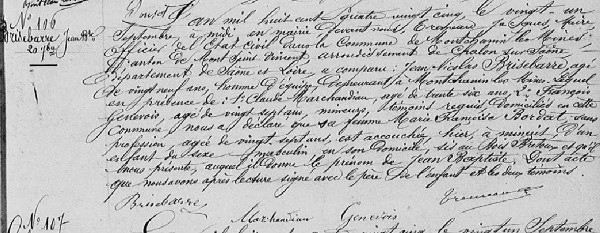 N° 106
Brisebarre Jean Bte
20 7bre
L'an mil huit cent quatre vingt cinq le vingt un
Septembre, à midi, en mairie, devant nous, soussigné, Maire
Officier de l'Etat Civil dans la Commune de Montchanin les Mines,
Canton de Mont Saint Vincent, arrondissement de Chalon sur Saône
département de Saône et Loire, a comparu Jean Nicolas Brisebarre, âgé
de vingt neuf ans, homme d'équipe, demeurant à Montchanin les Mines, lequel
en présence de 1° Claude Marchandiau, âgé de trente six ans, 2° François
Genevois, âgé de vingt sept ans, mineurs, témoins requis, domiciliés en cette
Commune, nous a déclaré que sa femme Marie Françoise Bordat, sans
profession âgée de vingt sept ans, est accouchée hier, à minuit d'un
enfant du sexe masculin en son domicile, sis au Bois Bretoux et qu'il
nous présente, auquel il donne le prénom de Jean Baptiste. Dont acte
que nous avons après lecture signé avec le père de l'enfant et les deux témoins.
Brisebarre Marchandiau Genevois
N° 107
vingt cinq le vingt un Septembre